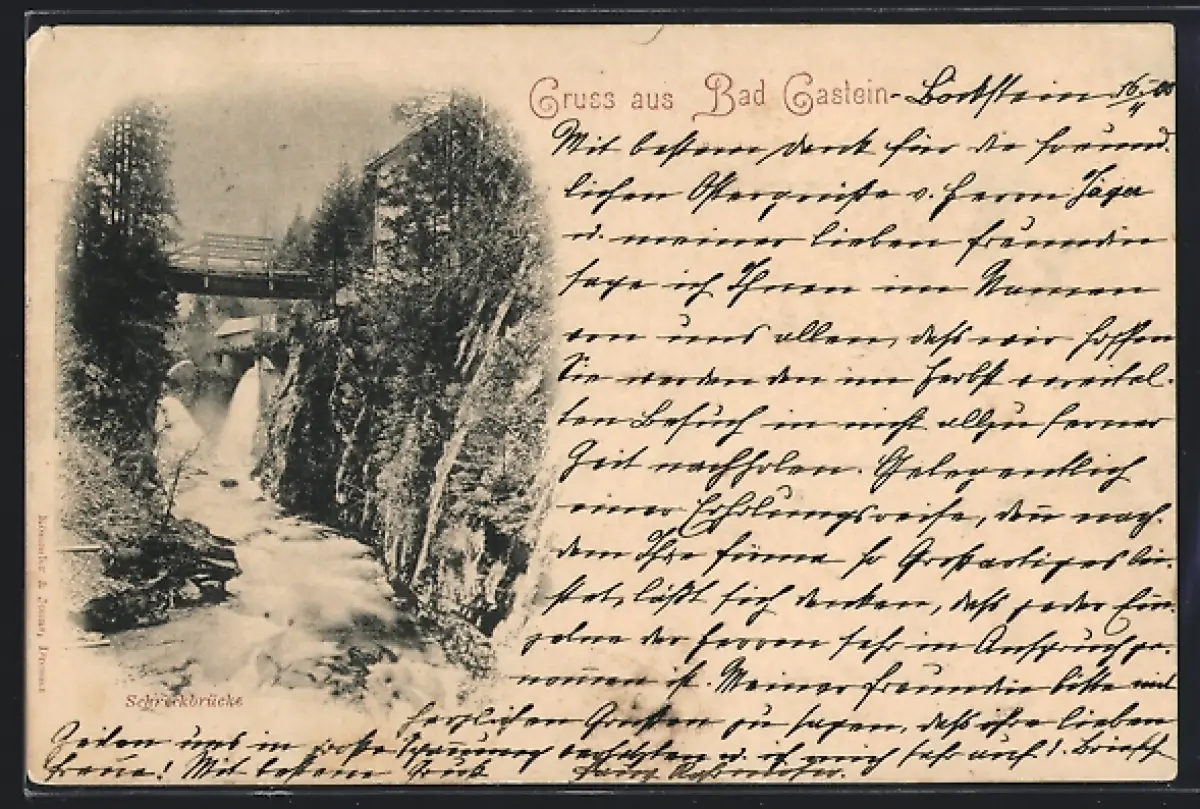 Gruss aus Bad Gastein - Böckstein 16/4 00
Mit bestem Dank für die freund-
lichen Ostergrüße v. Herrn Jäger
u. meiner lieben Freundin
sage ich Ihnen im Namen
von uns allen, daß wir hoffen
Sie werden den im Herbst vereitel-
ten Besuch in nicht allzu ferner
Zeit nachholen. Gelegentlich
einer Erholungsreise, den nach-
dem Ihre Firma so Großartiges lei-
stet, läßt sich denken, daß jeder Ein-
zelne der Herren sehr in Anspruch ge-
nommen ist. Meiner Freundin bitte
herzlichen Grüßen zu sagen, daß ihre lieben
Zeilen uns in große versetzten u. ich mich sehr auf 1. Brief
freue! Mit bestem Gruß
Schreckbrücke